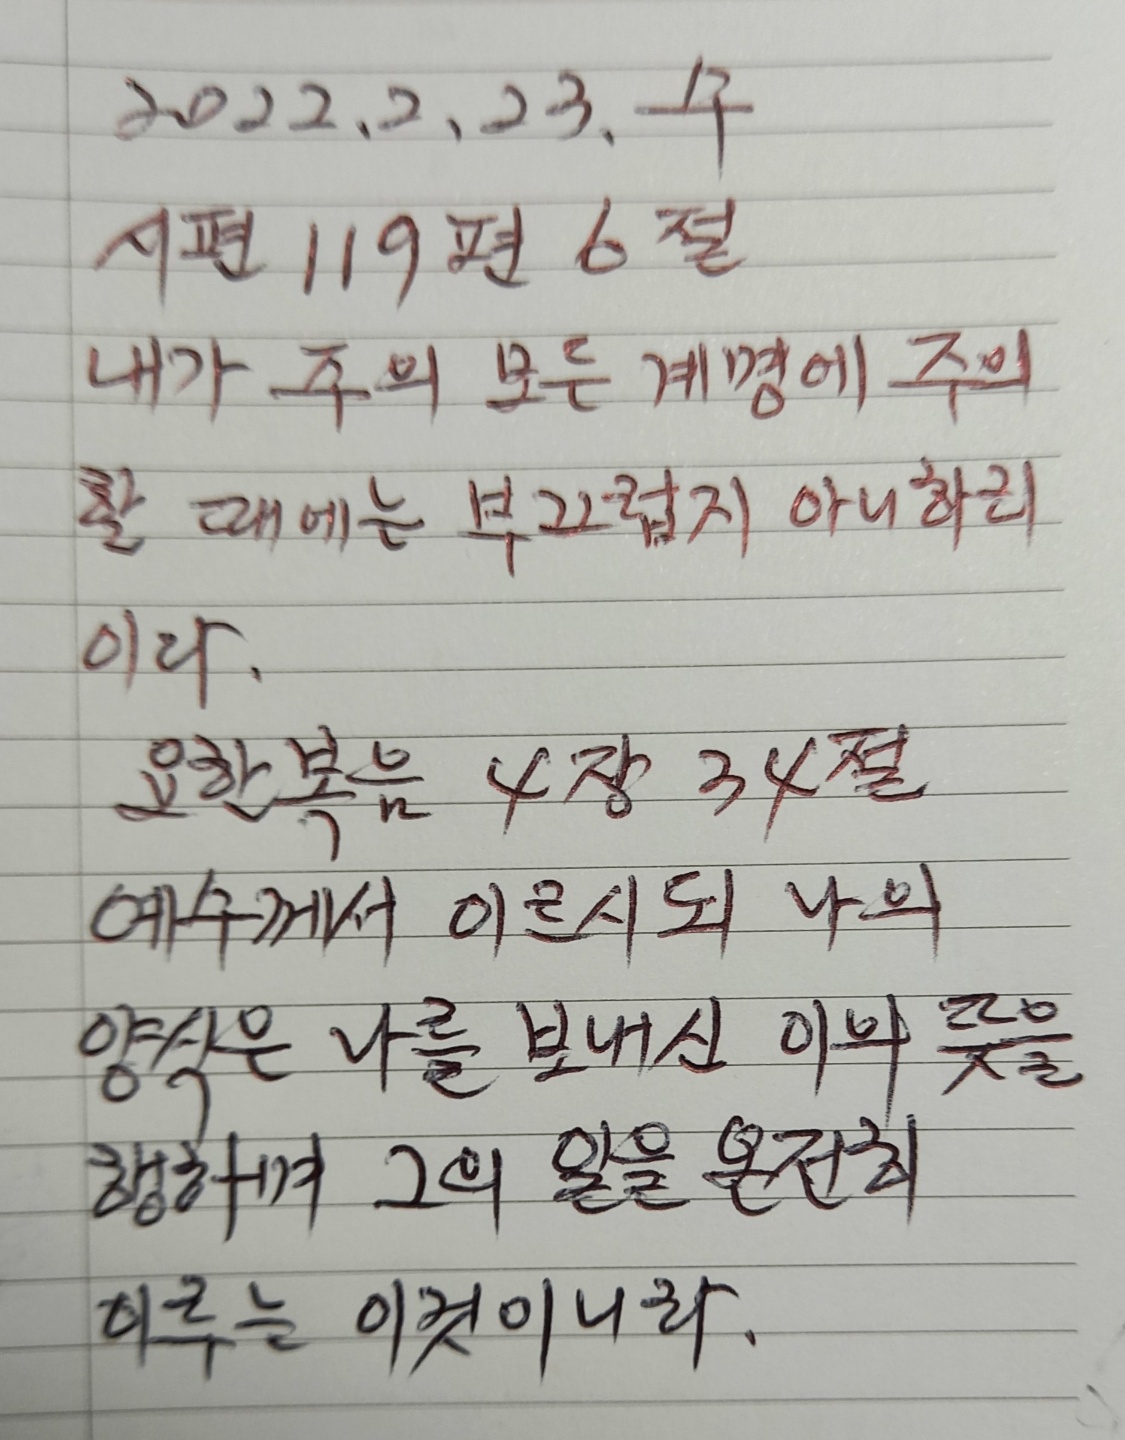 2022. 2. 23. 수
시편 119편 6절
내가 주의 모든 계명에 주의
할 때에는 부끄럽지 아니하리
이다.
요한복음 4장 34절
예수께서 이르시되 나의
양식은 나를 보내신 이의 뜻을
행하며 그의 일을 온전히
이루는 이것이니라.